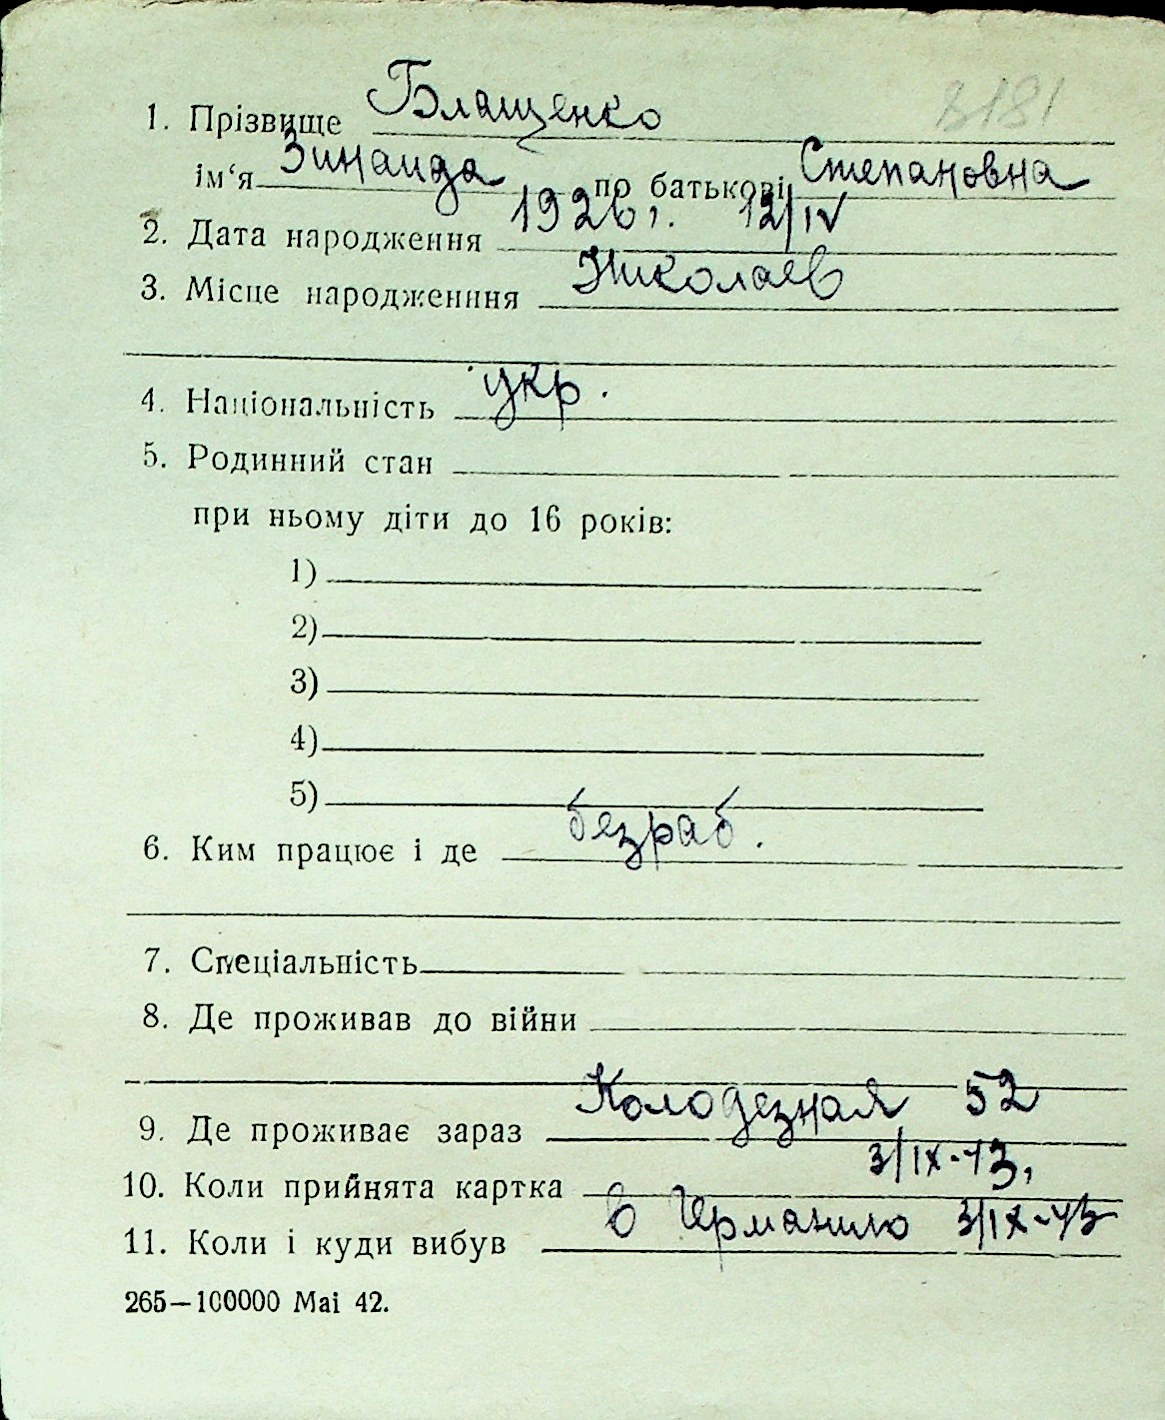 8181
1. Прізвище Блащенко
ім‘я Зинаида по батькові Степановна
2. Дата народження 1926 г. 12/IV
3. Місце народженння Николаев
4. Національність укр.
5. Родинний стан
при ньому діти до 16 років:
1)
2)
3)
4)
5)
6. Ким працює і де безраб.
7. Спеціальність
8. Де проживав до війни
9. Де проживає зараз Колодезная 52
10. Коли прийнята картка 3/IX-43,
11. Коли і куди вибув в Германию 3/IX-43
265—100000 Mai 42.